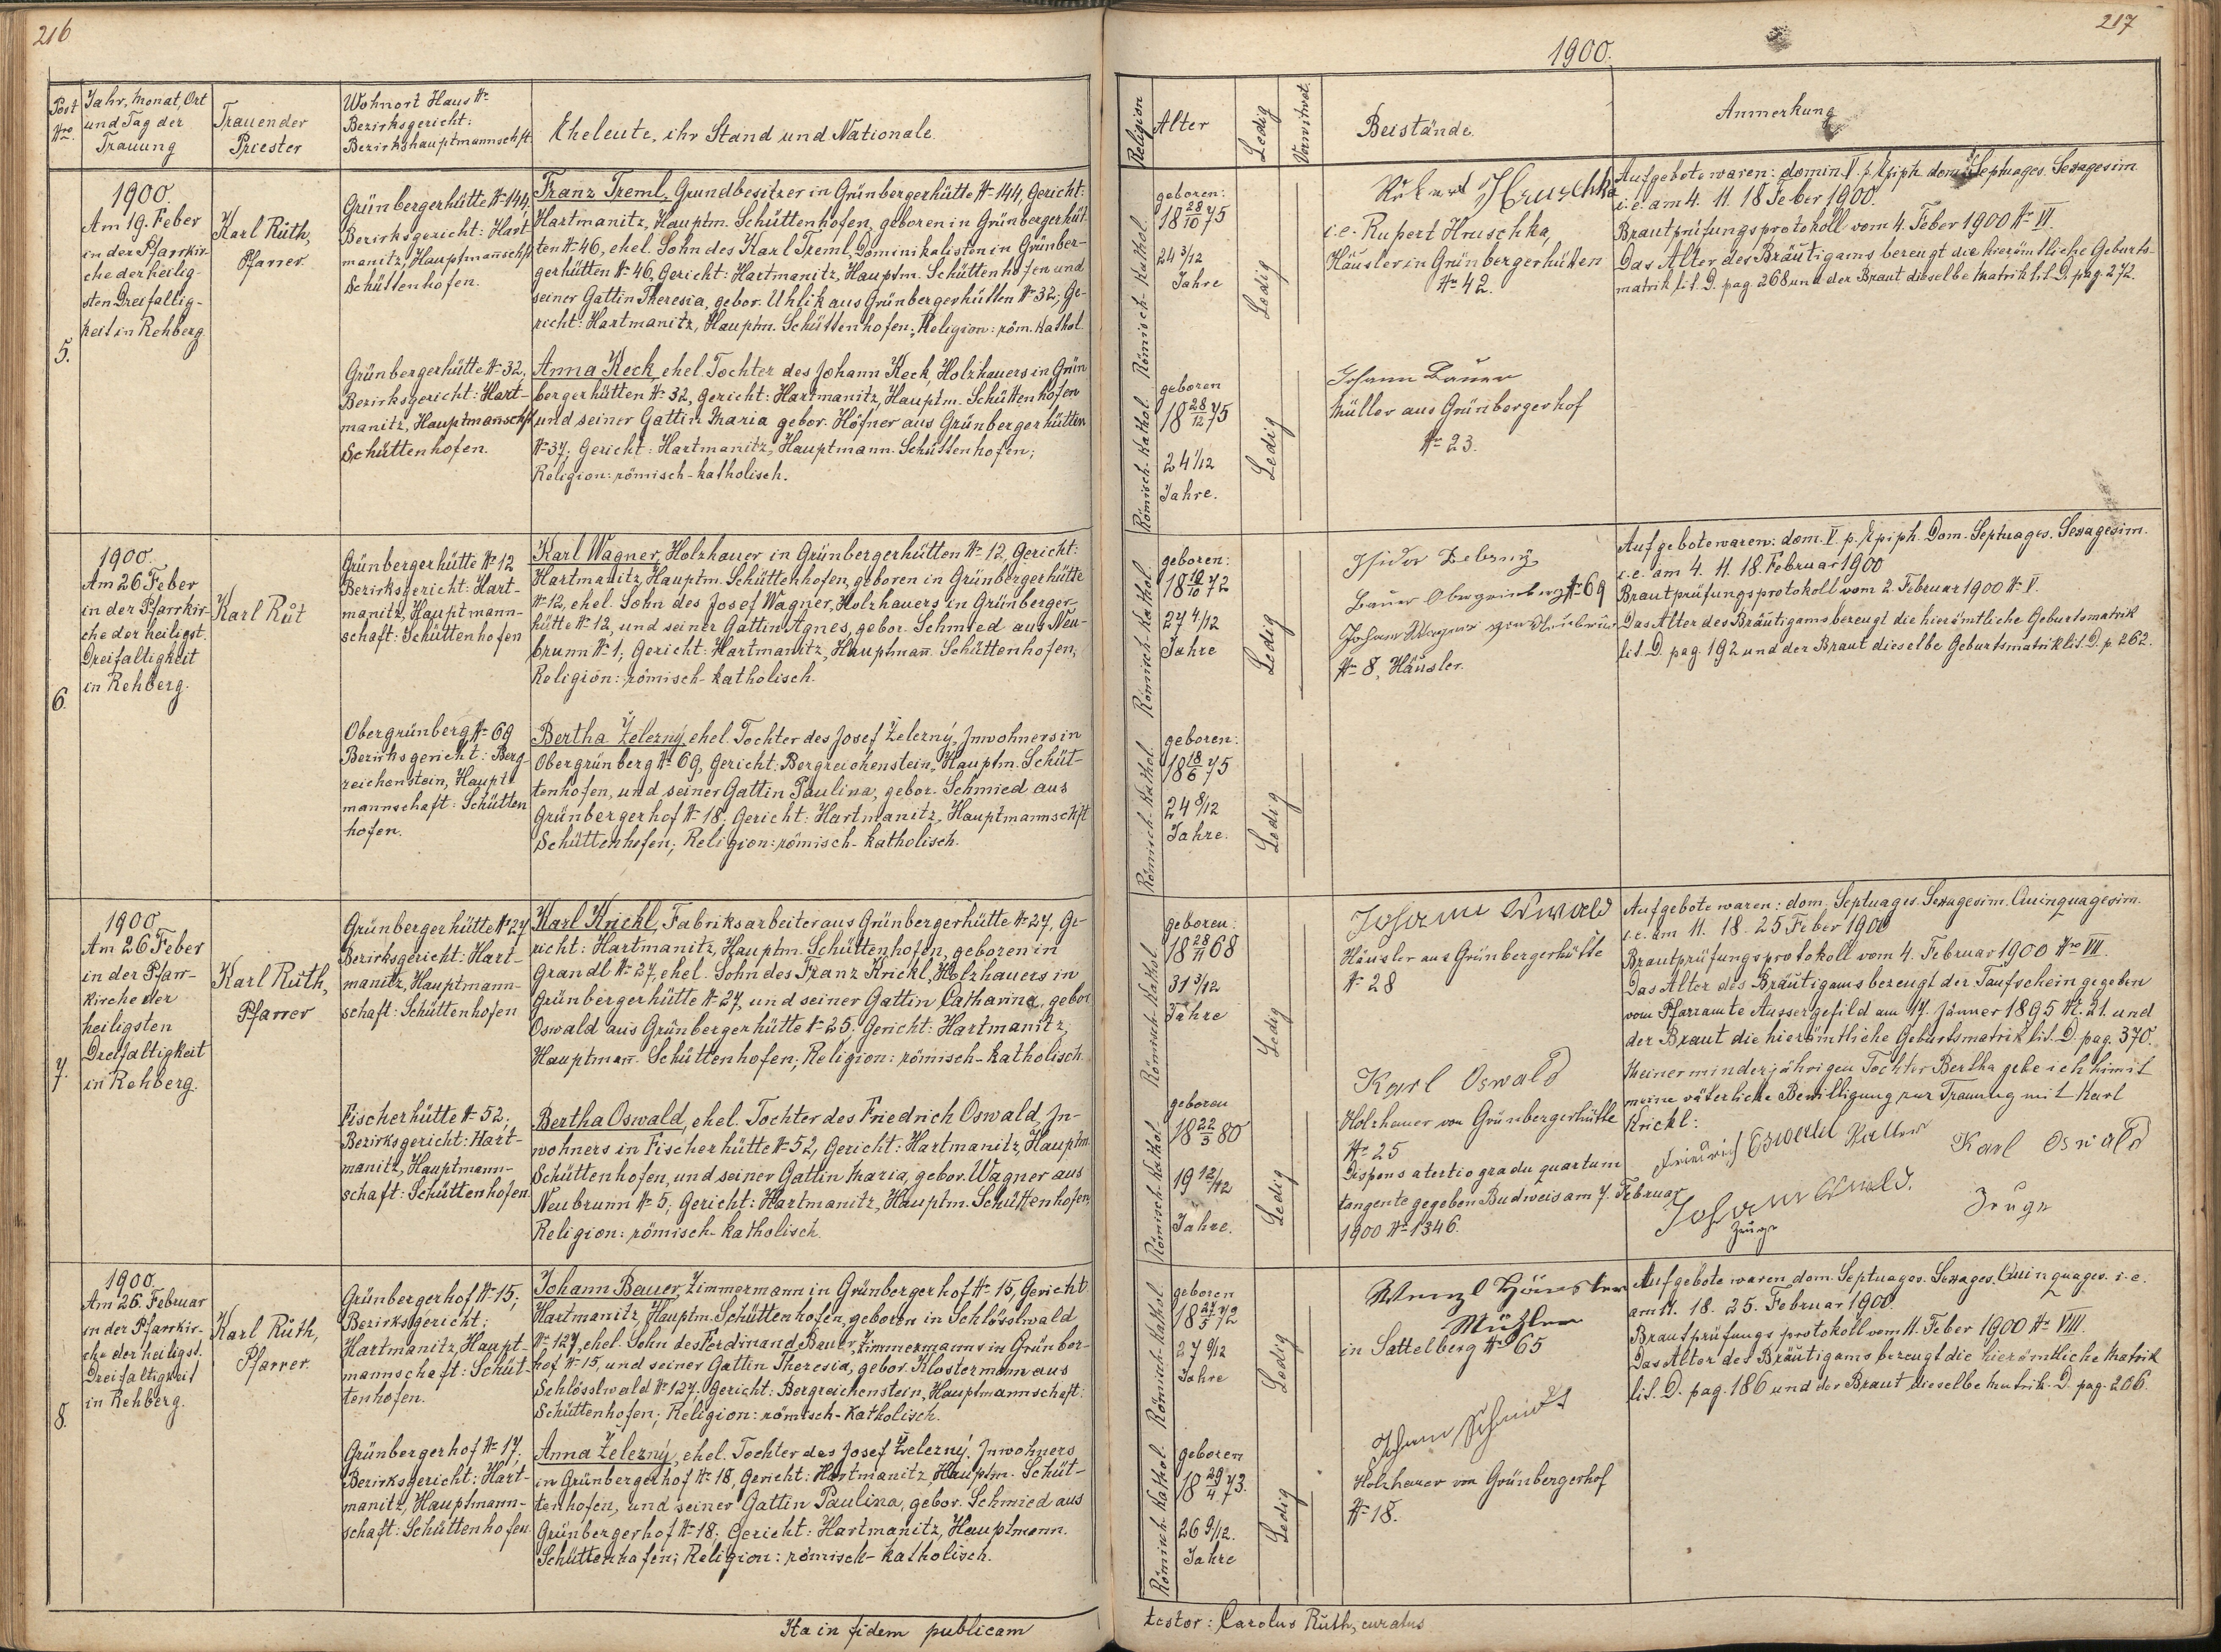 216
Post Nro.
Jahr, Monat, Ort
und Tag der
Trauung
Trauender
Priester
Wohnort Haus No
Bezirksgericht:
Bezirkshauptmannschft.
Eheleute, ihr Stand und Nationale.
5.
1900.
Am 19. Feber
in der Pfarrkir-
che der heilig-
sten Dreifaltig-
keit in Rehberg.
Karl Rŭth,
Pfarrer
Grünbergerhütte No 144,
Bezirksgericht: Hart-
manitz, Hauptmannschft
Schüttenhofen.
Franz Treml, Grundbesitzer in Grünbergerhütte No 144, Gericht:
Hartmanitz, Hauptm. Schüttenhofen, geboren in Grünbergerhüt-
ten No 46, ehel. Sohn des Karl Treml, Dominikalist in Grünber-
gerhütten No 46, Gericht: Hartmanitz, Hauptm. Schüttenhofen und
seiner Gattin Theresia, gebor. Uhlik aus Grünbergerhütten No 32; Ge-
richt: Hartmanitz, Hauptm. Schüttenhofen; Religion: röm. kathol.
Grünbergerhütte No 32,
Bezirksgericht: Hart-
manitz, Hauptmannschft
Schüttenhofen.
Anna Keck, ehel. Tochter des Johann Keck, Holzhauers in Grün
bergerhütten No 32, Gericht: Hartmanitz, Hauptm. Schüttenhofen
und seiner Gattin Maria gebor. Höfner aus Grünbergerhütten
No 37; Gericht: Hartmanitz, Hauptmann. Schüttenhofen;
Religion: römisch-katholisch.
6.
1900.
Am 26 Feber
in der Pfarrkir-
che der heiligst.
Dreifaltigkeit
in Rehberg.
Karl Rŭt
Grünbergerhütte No 12
Bezirksgericht: Hart-
manitz, Hauptmann-
schaft: Schüttenhofen
Karl Wagner, Holzhauer in Grünbergerhütten No 12, Gericht:
Hartmanitz, Hauptm. Schüttenhofen, geboren in Grünbergerhütte
No 12, ehel. Sohn des Josef Wagner, Holzhauers in Grünberger-
hütte No 12, und seiner Gattin Agnes, gebor. Schmied aus Neu-
brunn No 1, Gericht: Hartmanitz, Hauptmann. Schüttenhofen,
Religion: römisch-katholisch.
Obergrünberg No 69
Bezirksgericht: Berg-
reichenstein, Haupt-
mannschaft: Schütten
hofen.
Bertha Železný, ehel. Tochter des Josef Železný, Inwohners in
Obergrünberg No 69, Gericht: Bergreichenstein, Hauptm. Schüt-
tenhofen, und seiner Gattin Paulina, gebor. Schmied aus
Grünbergerhof No 18, Gericht: Hartmanitz, Hauptmannschft
Schüttenhofen; Religion: römisch-katholisch.
7.
1900
Am 26 Feber
in der Pfarr-
kirche der
heiligsten
Dreifaltigkeit
in Rehberg.
Karl Rŭth,
Pfarrer
Grünbergerhütte No 27
Bezirksgericht: Hart-
manitz, Hauptmann-
schaft: Schüttenhofen
Karl Krickl, Fabriksarbeiter aus Grünbergerhütte No 27, Ge-
richt: Hartmanitz, Hauptm. Schüttenhofen, geboren in
Grandl No 27, ehel. Sohn des Franz Krickl, Holzhauers in
Grünbergerhütte No 27, und seiner Gattin Catharina, gebor
Oswald aus Grünbergerhütte No 25. Gericht: Hartmanitz,
Hauptmann. Schüttenhofen; Religion: römisch-katholisch.
Fischerhütte No 52,
Bezirksgericht: Hart-
manitz, Hauptmann-
schaft: Schüttenhofen.
Bertha Oswald, ehel. Tochter des Friedrich Oswald, In-
wohners in Fischerhütte No 52, Gericht: Hartmanitz, Hauptm.
Schüttenhofen, und seiner Gattin Maria, gebor. Wagner aus
Neubrunn No 5; Gericht: Hartmanitz, Hauptm. Schüttenhofen,
Religion: römisch-katholisch.
8.
1900.
Am 26. Februar
in der Pfarrkir-
che der heiligst.
Dreifaltigkeit
in Rehberg.
Karl Rŭth,
Pfarrer.
Grünbergerhof No 15;
Bezirksgericht:
Hartmanitz, Haupt-
mannschaft: Schüt-
tenhofen.
Johann Bauer, Zimmermann in Grünbergerhof No 15, Gericht
Hartmanitz, Hauptm. Schüttenhofen, geboren in Schlösslwald
No 127, ehel. Sohn des Ferdinand Bauer, Zimmermanns in Grünber-
hof No 15, und seiner Gattin Theresia, gebor. Klostermann aus
Schlösslwald No 127; Gericht: Bergreichenstein, Hauptmannschaft:
Schüttenhofen; Religion: römisch-katholisch.
Grünbergerhof No 17,
Bezirksgericht: Hart-
manitz, Hauptmann-
schaft: Schüttenhofen.
Anna Železný, ehel. Tochter des Josef Železný, Inwohners
in Grünbergerhof No 18, Gericht: Hartmanitz, Hauptm. Schüt-
tenhofen, und seiner Gattin Paulina, gebor. Schmied aus
Grünbergerhof No 18; Gericht: Hartmanitz, Hauptmann.
Schüttenhofen; Religion: römisch-katholisch.
Ita in fidem publicam
217
1900.
Religion
Alter
Ledig
Verwitwet.
Beistände.
Anmerkung
Römisch-kathol.
geboren:
18 28/10 75
24 3/12
Jahre
Ledig
Hruschka
i.e. Rupert Hruschka,
Häusler in Grünbergerhütten
No 42.
Aufgebote waren: domin. V. p. Epiph. dom. Septuages. Sexagesim.
i.e. am 4. 11. 18 Feber 1900.
Brautprüfungsprotokoll vom 4. Feber 1900 No VI.
Das Alter des Bräutigams bezeugt die hierämtliche Geburts-
matrik lit. D. pag. 268 und der Braut dieselbe Matrik lit. D. pag. 272.
Römisch-kathol.
geboren
18 28/12 75
24 1/12
Jahre.
Ledig
Johann Bauer
Müller aus Grünbergerhof
No 23.
Römisch-kathol.
geboren:
18 10/10 72
27 4/12
Jahre
Ledig
Isidor Zelezny
Bauer Obergrünberg No 69
Johann Wagner
No 8, Häusler.
Aufgebote waren: dom. V. p. Epiph. Dom. Septuages. Sexagesim.
i.e. am 4. 11. 18. Februar 1900
Brautprüfungsprotokoll vom 2. Februar 1900 No V.
Das Alter des Bräutigams bezeugt die hierämtliche Geburtsmatrik
lit. D. pag. 192 und der Braut dieselbe Geburtsmatrik lit. D. p 262.
Römisch-kathol.
geboren:
18 18/6 75
24 8/12
Jahre.
Ledig
Römisch-kathol.
geboren:
18 28/11 68
31 3/12
Jahre
Ledig
Johann Oswald
Häusler aus Grünbergerhütte
No 28
Aufgebote waren: dom. Septuages. Sexagesim. Quinquagesim.
i.e. am 11. 18. 25 Feber 1900
Brautprüfungsprotokoll vom 4. Februar 1900 Nro VII.
Das Alter des Bräutigams bezeugt der Taufschein gegeben
vom Pfarramte Aussergefild am 17. Jänner 1895 No 21. und
der Braut die hierämtliche Geburtsmatrik lit. D. pag. 370.
Meiner minderjährigen Tochter Bertha gebe ich himit
meine väterliche Bewilligung zur Trauung mit Karl
Krickl:
Friedrich Oswald Vatter
Karl Oswald
Zeuge
Johann Oswald.
Zeuge
Römisch-kathol.
geboren
18 22/3 80
19 12/12
Jahre.
Ledig
Karl Oswald
Holzhauer von Grünbergerhütte
No 25
Dispens a tertio gradu quartum
tangente gegeben Budweis am 7. Februar
1900 No 1346.
Römisch-kathol.
geboren
18 27/5 72
27 9/12
Jahre
Ledig
Wenzl
Müller
in Sattelberg No 65
Aufgebote waren dom. Septuages. Sexages. Quinquages. i.e.
am 11. 18. 25. Februar 1900.
Brautprüfungsprotokoll vom 11. Feber 1900 No VIII.
Das Alter des Bräutigams bezeugt die hierämtliche Matrik
lit. D. pag. 186 und der Braut dieselbe Matrik. D. pag. 206.
Römisch-kathol.
geboren
18 29/4 73.
26 9/12.
Jahre
Ledig
Johann Schmidt
Holzhauer von Grünbergerhof
No 18.
testor: Carolus Rŭth, curatus